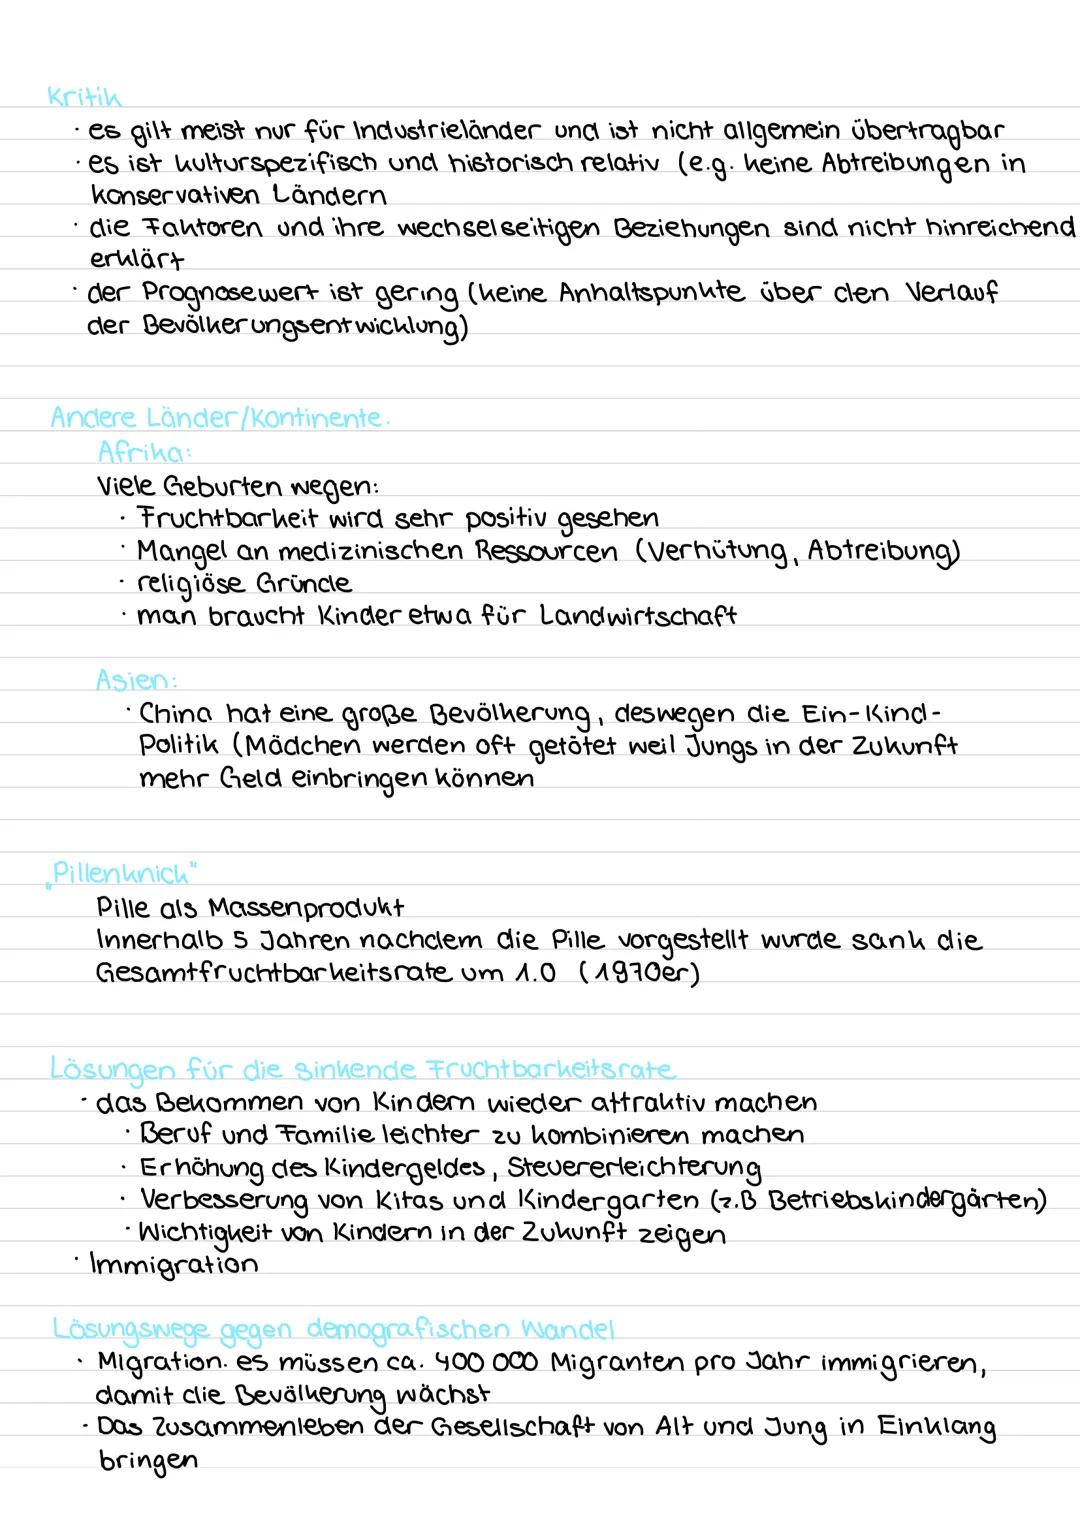 Kritik
· es gilt meist nur für Industrieländer und ist nicht allgemein übertragbar
· es ist kulturspezifisch und historisch relativ (e.g. keine Abtreibungen in
konservativen Ländern
· die Faktoren und ihre wechselseitigen Beziehungen sind nicht hinreichend
erklärt
· der Prognosewert ist gering (keine Anhaltspunkte über den Verlauf
der Bevölkerungsentwicklung)
Andere Länder/Kontinente.
Afrika:
Viele Geburten wegen:
· Fruchtbarkeit wird sehr positiv gesehen
· Mangel an medizinischen Ressourcen (Verhütung, Abtreibung)
· religiöse Gründe
· man braucht Kinder etwa für Landwirtschaft
Asien:
· China hat eine große Bevölkerung, deswegen die Ein-Kind-
Politik (Mädchen werden oft getötet weil Jungs in der Zukunft
mehr Geld einbringen können
„Pillenknick"
Pille als Massenprodukt
Innerhalb 5 Jahren nachdem die Pille vorgestellt wurde sank die
Gesamtfruchtbarkeitsrate um 1.0 (1970er)
Lösungen für die sinkende Fruchtbarkeitsrate
· das Bekommen von Kindern wieder attraktiv machen
· Beruf und Familie leichter zu kombinieren machen
· Erhöhung des Kindergeldes, Steuererleichterung
· Verbesserung von Kitas und Kindergarten (z.B Betriebskindergärten)
· Wichtigkeit von Kindern in der Zukunft zeigen
· Immigration
Lösungswege gegen demografischen Wandel
· Migration. es müssen ca. 400 000 Migranten pro Jahr immigrieren,
damit die Bevölkerung wächst
· Das Zusammenleben der Gesellschaft von Alt und Jung in Einklang
bringen